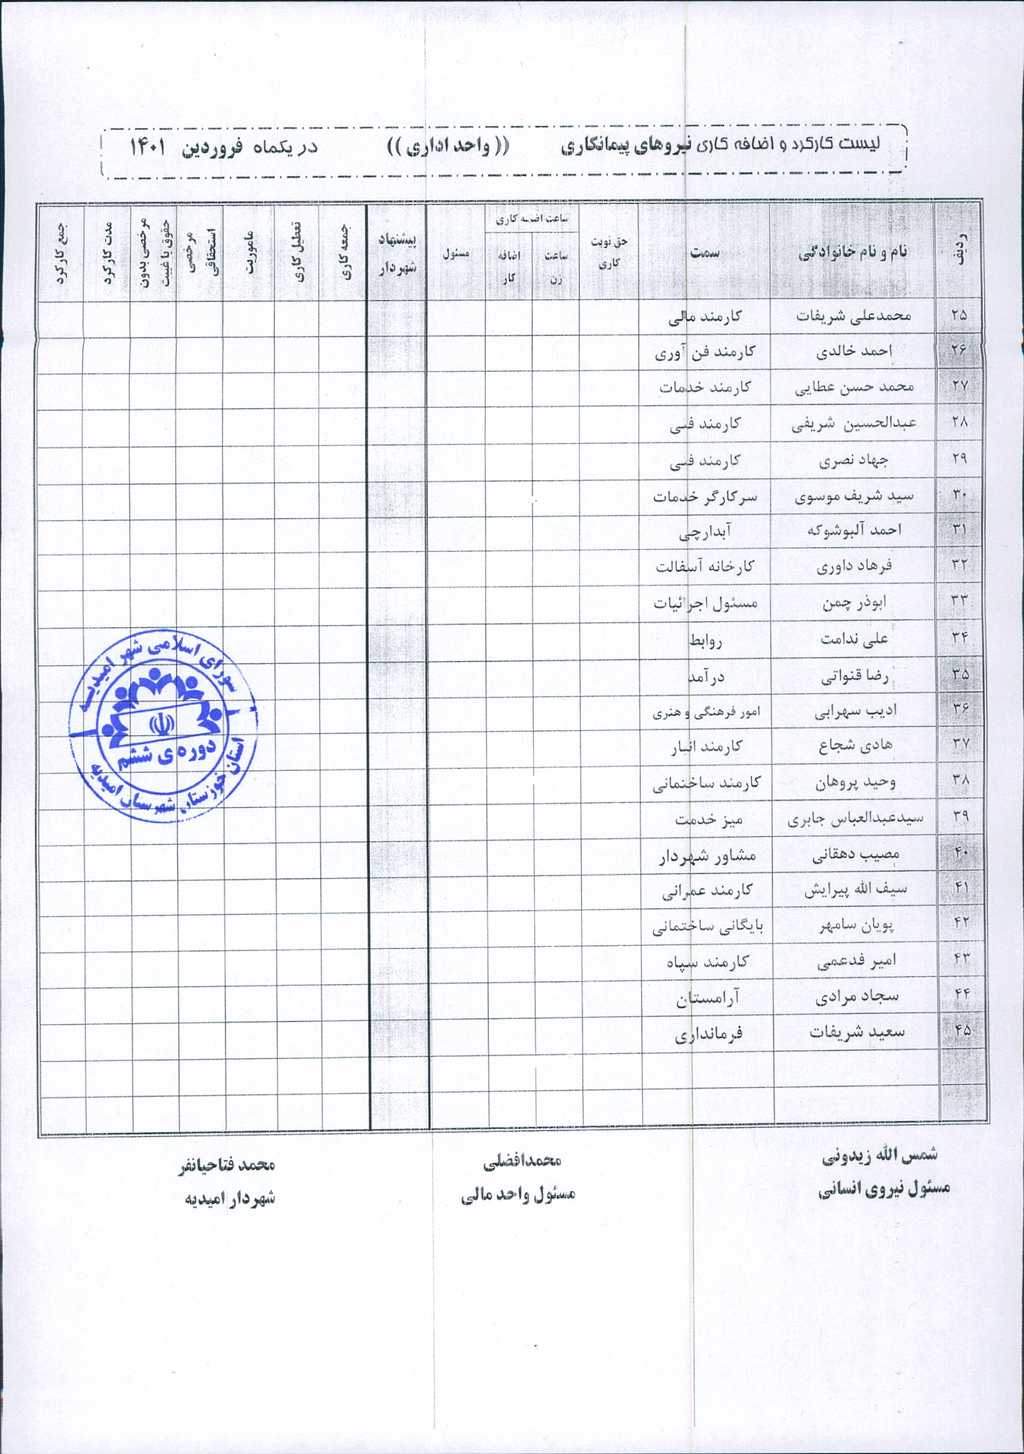 لیست کارکرد و اضافه کاری نیروهای پیمانکاری (( واحد اداری )) در یکماه فروردین ۱۴۰۱
ردیف نام و نام خانوادگی سمت حق نوبت کاری ساعت اضافه کاری ساعت زن اضافه کار مسئول پیشنهاد شهردار جمعه کاری تعطیل کاری ماموریت مرخصی استحقاقی مرخصی بدون حقوق یا غیبت مدت کارکرد جمع کارکرد
۲۵ محمدعلی شریفات کارمند مالی
۲۶ احمد خالدی کارمند فن آوری
۲۷ محمد حسن عطایی کارمند خدمات
۲۸ عبدالحسین شریفی کارمند فنی
۲۹ جهاد نصری کارمند فنی
۳۰ سید شریف موسوی سرکارگر خدمات
۳۱ احمد آلبوشوکه آبدارچی
۳۲ فرهاد داوری کارخانه آسفالت
۳۳ ابوذر چمن مسئول اجرائیات
۳۴ علی ندامت روابط
۳۵ رضا قنواتی درآمد
۳۶ ادیب سهرابی امور فرهنگی و هنری
۳۷ هادی شجاع کارمند انبار
۳۸ وحید پروهان کارمند ساختمانی
۳۹ سیدعبدالعباس جابری میز خدمت
۴۰ مصیب دهقانی مشاور شهردار
۴۱ سیف الله پیرایش کارمند عمرانی
۴۲ پویان سامهر بایگانی ساختمانی
۴۳ امیر فدعمی کارمند سپاه
۴۴ سجاد مرادی آرامستان
۴۵ سعید شریفات فرمانداری
شورای اسلامی شهر امیدیه
دوره ی ششم
استان خوزستان شهرستان امیدیه
شمس الله زیدونی محمدافضلی محمد فتاحیانفر
مسئول نیروی انسانی مسئول واحد مالی شهردار امیدیه